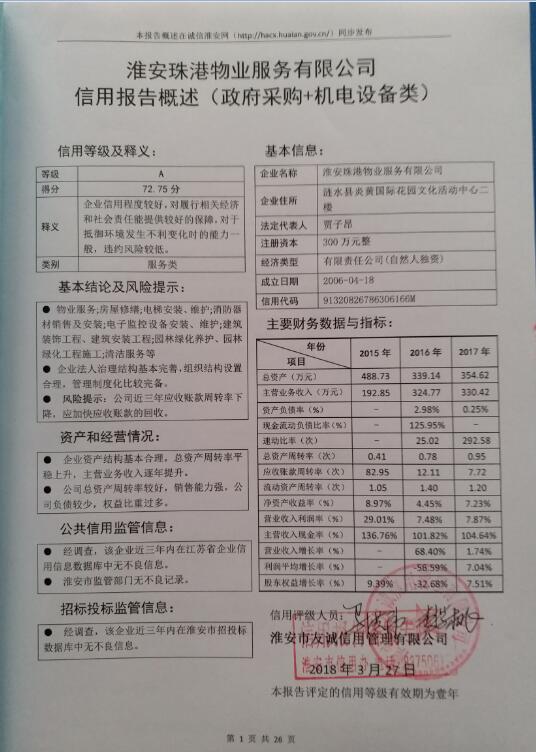 本报告概述在诚信淮安网（http://hacx.huaian.gov.cn/）同步发布
淮安珠港物业服务有限公司
信用报告概述（政府采购+机电设备类）
信用等级及释义：
等级 A
得分 72.75 分
释义
企业信用程度较好，对履行相关经济
和社会责任能提供较好的保障，对于
抵御环境发生不利变化时的能力一
般，违约风险较低。
类别 服务类
基本结论及风险提示：
● 物业服务;房屋修缮;电梯安装、维护;消防器
材销售及安装;电子监控设备安装、维护;建筑
装饰工程、建筑安装工程;园林绿化养护、园林
绿化工程施工;清洁服务等
● 企业法人治理结构基本完善，组织结构设置
合理，管理制度化比较完备。
● 风险提示：公司近三年应收账款周转率下
降，应加快应收账款的回收。
资产和经营情况：
● 企业资产结构基本合理，总资产周转率平
稳上升，主营业务收入逐年提升。
● 公司总资产周转率较好，销售能力强，公
司负债较少，权益比重过多。
公共信用监管信息：
● 经调查，该企业近三年内在江苏省企业信
用信息数据库中无不良信息。
● 淮安市监管部门无不良记录。
招标投标监管信息：
● 经调查，该企业近三年内在淮安市招投标
数据库中无不良信息。
基本信息：
企业名称 淮安珠港物业服务有限公司
企业住所 涟水县炎黄国际花园文化活动中心二
楼
法定代表人 贾子昂
注册资本 300 万元整
经济类型 有限责任公司(自然人独资)
成立日期 2006-04-18
信用代码 91320826786306166M
主要财务数据与指标：
年份
项目 2015 年 2016 年 2017 年
总资产（万元） 488.73 339.14 354.62
主营业务收入（万元） 192.85 324.77 330.42
资产负债率（%） – 2.98% 0.25%
现金流动负债比率(%) – 125.95% –
速动比率（次） – 25.02 292.58
总资产周转率（次） 0.41 0.78 0.95
应收账款周转率（次） 82.95 12.11 7.72
流动资产周转率（次） 1.05 1.40 1.20
净资产收益率（%） 8.97% 4.45% 7.23%
营业收入利润率（%） 29.01% 7.48% 7.87%
主营收入现金率（%） 136.76% 101.82% 104.64%
营业收入增长率（%） – 68.40% 1.74%
利润平均增长率（%） – -56.59% 7.04%
股东权益增长率（%） 9.39% -32.68% 7.51%
信用评级人员：
淮安市友诚信用管理有限公司
2018 年 3 月 27 日
本报告评定的信用等级有效期为壹年
第 1 页 共 26 页